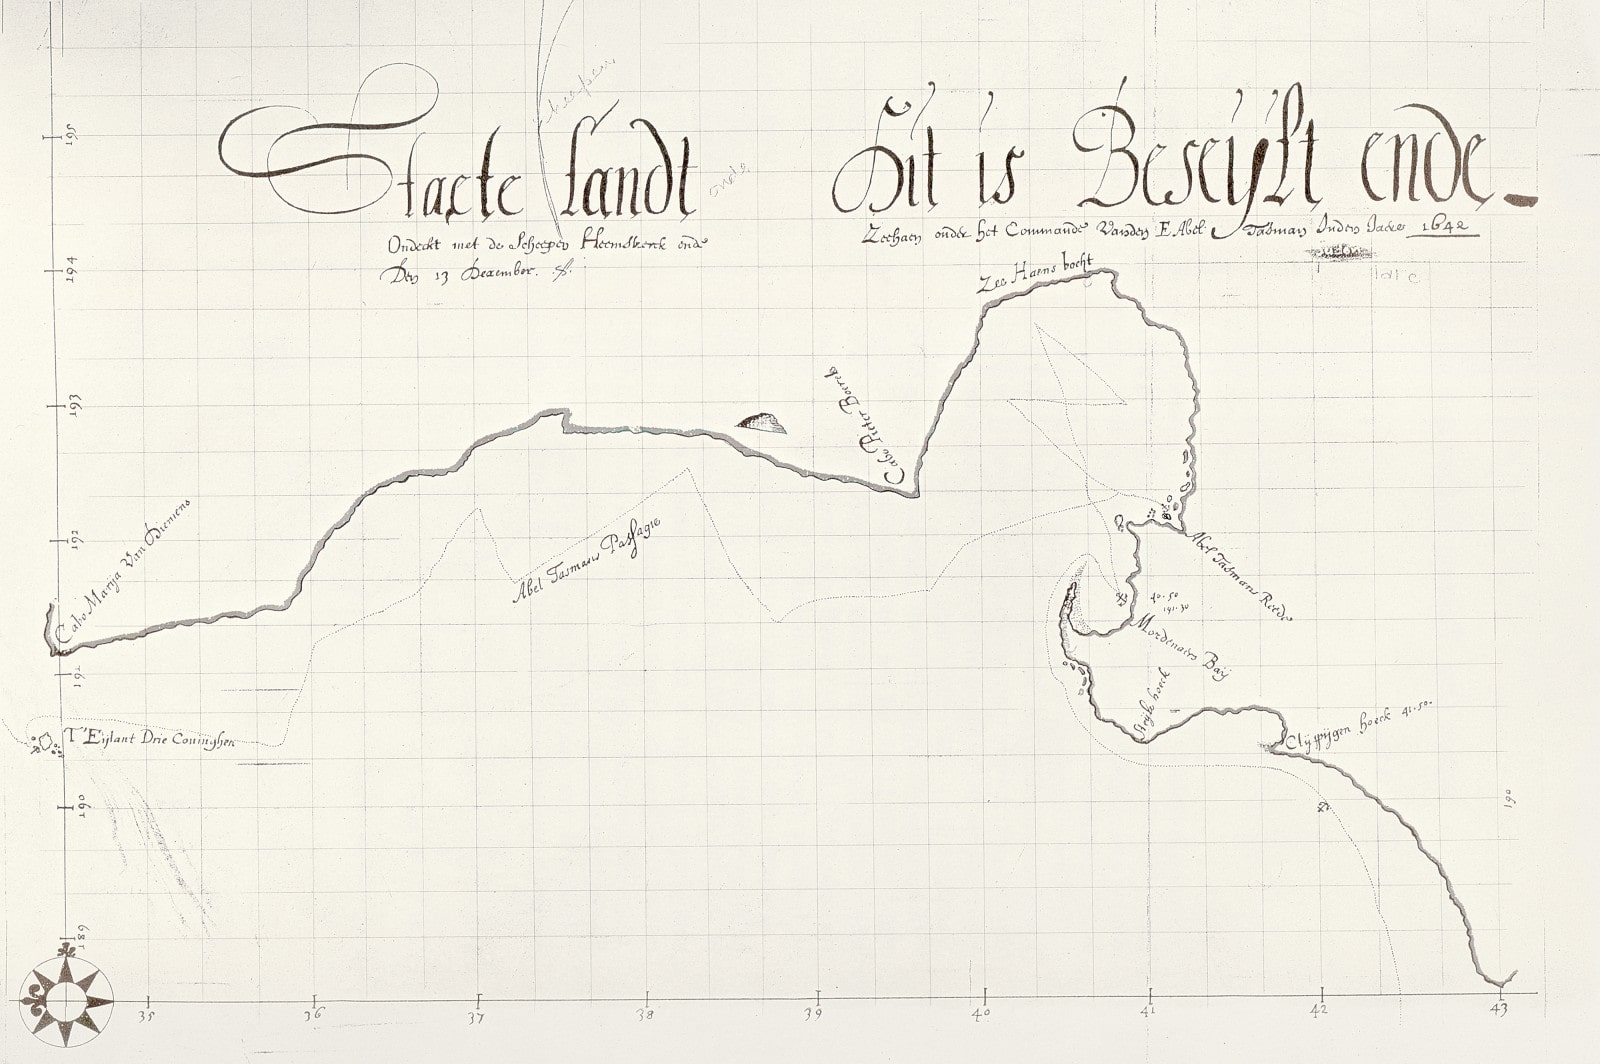 Staete Landt
Dit is Beseijlt ende
Ondeckt met de Scheepen Heemskerck ende
Zeehaen onder het Commande Vanden E Abel Tasman Inden Jaere 1642
Den 13 Desember.
Scheepen
ende
Zee Haens bocht
Cabo Pieter Boreels
Cabo Marija Van Diemens
Abel Tasmans Passagie
Abel Tasmans Reede
40.50
191.30
Mordenaers Baij
Steijle hoeck
Clijppijgen hoeck 41.50.
T'Eijlant Drie Coninghen
195
194
193
192
191
190
189
190
35 36 37 38 39 40 41 42 43